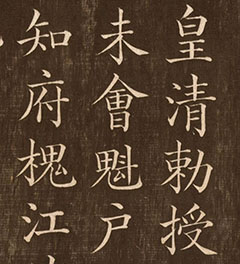 皇清勅授
未會魁户
知府槐江